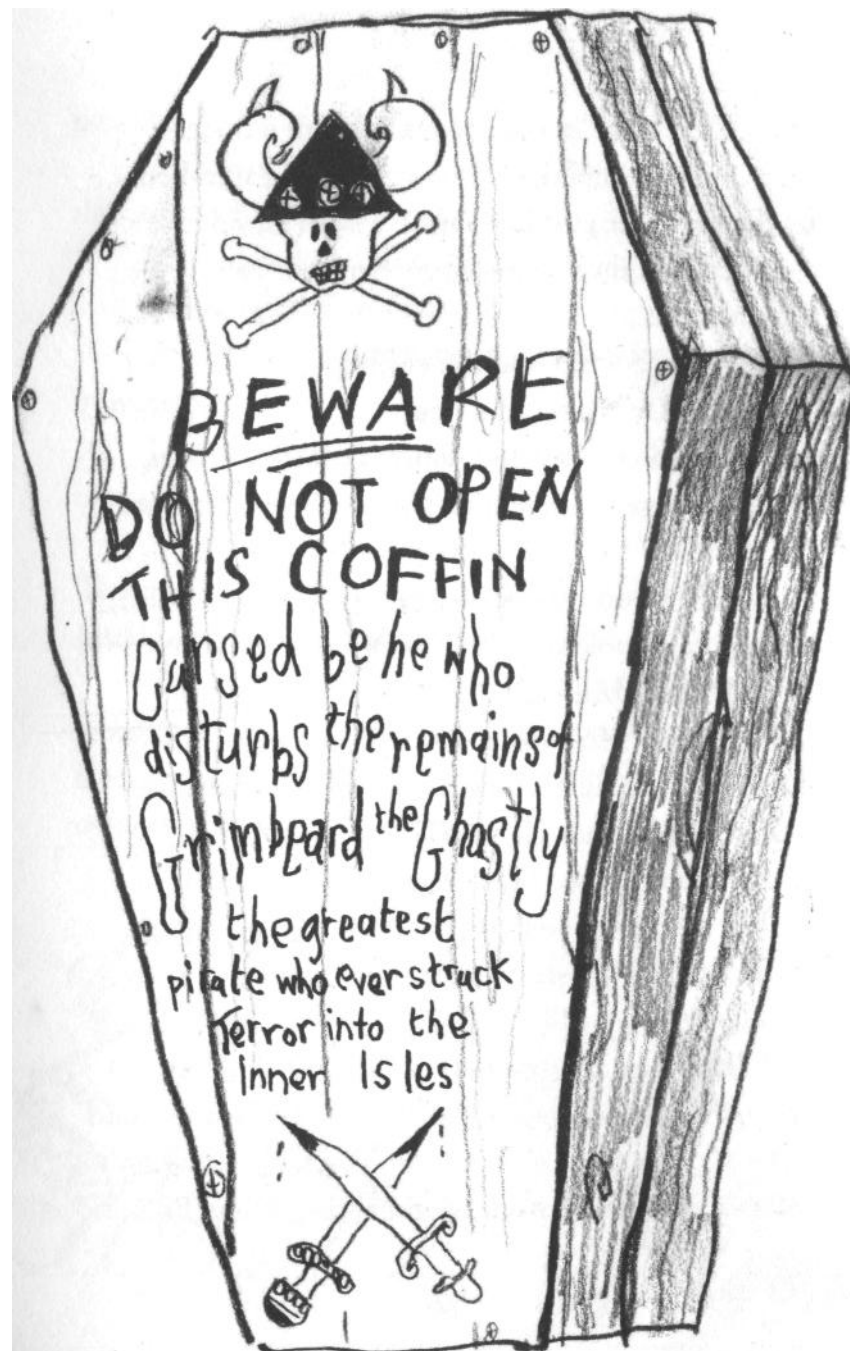 BEWARE
DO NOT OPEN
THIS COFFIN
Cursed be he who
disturbs the remains of
Grimbeard the Ghastly
the greatest
pirate who ever struck
Terror into the
Inner Isles